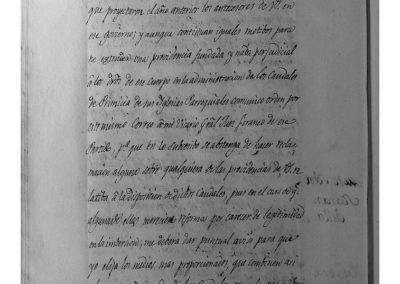 que proyectaron el año anterior los antecesores de V. en
ese govierno; y aunque continuan iguales motibos para
se una providencia fundada y nada perjudicial
a los de ese cuerpo en la administracion de los Caudales
de Primicia de sus Iglesias Parroquiales comunico orden por
este mismo Correo á mi Vicario Gral Juez foraneo de ese
Partido, pª que en lo subcesivo se abstenga de hacer recla-
macion alguna sobre qualquiera de las providencias de V. re-
latiba á la disposicion de dichos Caudales, pues en el caso de qe
alguna de ellas merezca reforma por carecer de legitimidad
en la inversion, me deberá dar puntual aviso para que
yo elija los medios mas proporcionados, que combinen asi